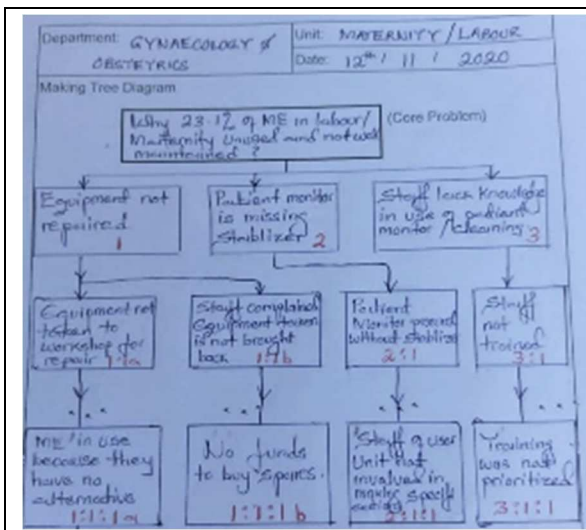 Department: GYNAECOLOGY &
OBSTETRICS
Unit: MATERNITY / LABOUR
Date: 12th / 11 / 2020
Making Tree Diagram
Why 23.1% of ME in Labour/
Maternity Unused and not well
maintained ?
(Core Problem)
Equipment not
repaired
1
Patient monitor
is missing
Stablizer 2
Staff lack knowledge
in use of patient
monitor /cleaning 3
Equipment not
taken to
workshop for
repair 1:1a
Staff complained
Equipment taken
is not brought
back 1:1b
Patient
Monitor
without Stablizer
2:1
Staff
not
trained
3:1
...
...
...
...
ME in use
because they
have no
alternative
1:1:1a
No funds
to buy spares.
1:1:1b
Staff of user
Unit not
involved in
2:1:1
Training
was not
prioritized
3:1:1